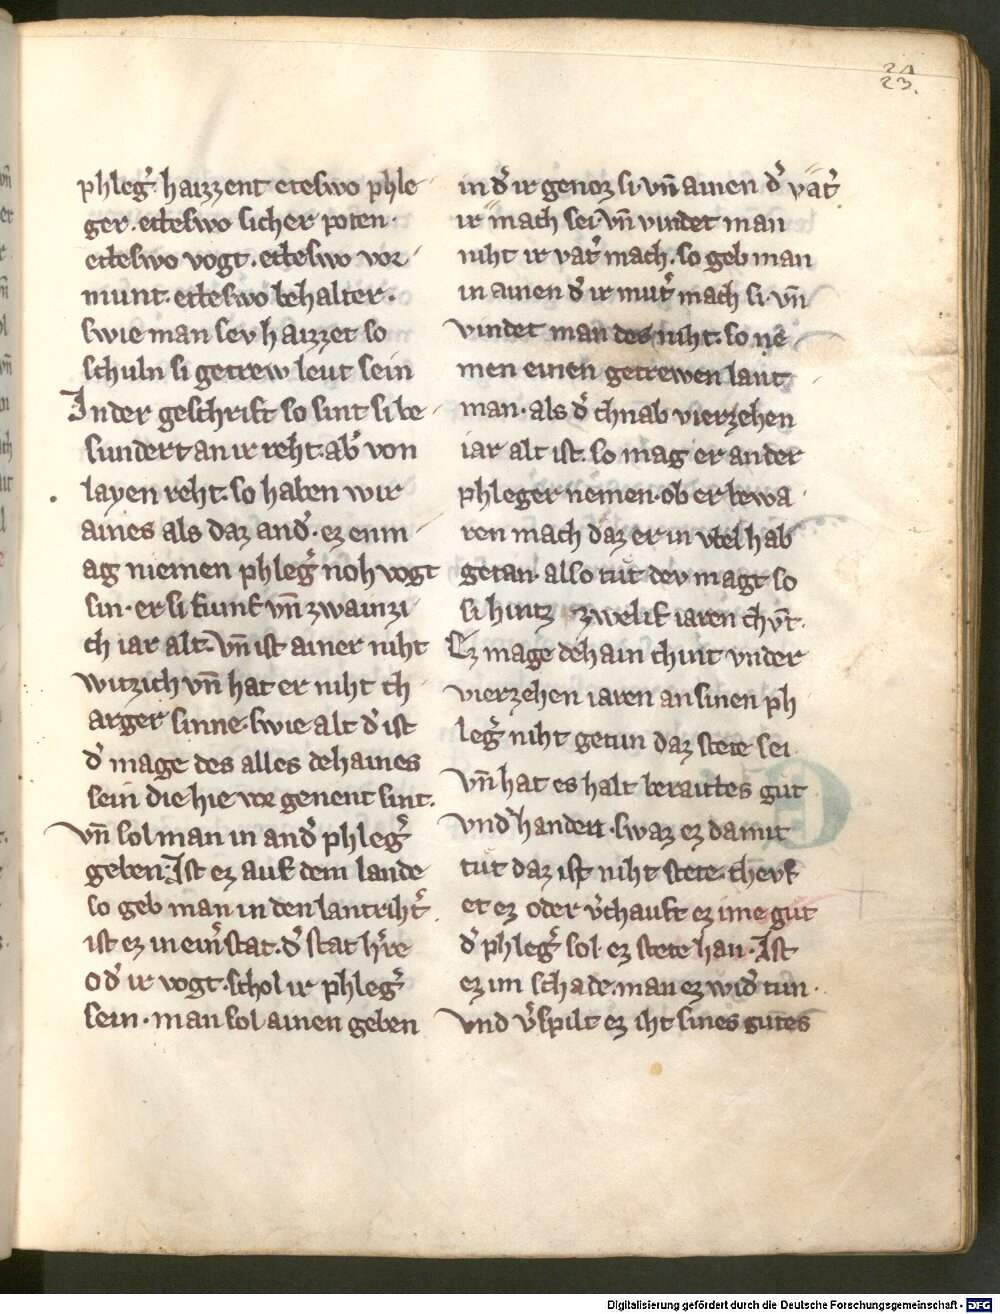 24
23.
phleg̾. haizzent eteſwo phle
ger. etteſwo ſicher poten.
etteſwo vogt. etteſwo vor
munt. etteſwo behalter.
ſwie man ſev haizzet ſo
ſchuln ſi getrew leut ſein
In der geſchrift ſo ſint ſi be
ſundert an ir reht. ab̾ von
layen reht. ſo haben wir
aines als daz and̾. ez enm
ag niemen phleg̾ noh vogt
ſin. er ſi fiunf vn̄ zwainzi
ch iar alt. vn̄ iſt ainer niht
witzich vn̄ hat er niht ch
arger ſinne. ſwie alt d̾ iſt
d̾ mage des alles dehaines
ſein die hie vor genent ſint.
vn̄ ſol man in and̾ phleg̾
geben. Iſt ez auf dem lande
ſo geb man in den lantriht̾.
iſt ez in ein̾ ſtat. d̾ ſtat h̾re
od̾ ir vogt. ſchol ir phleg̾
ſein. man ſol ainen geben
in d̾ ir genoz ſi. vn̄ ainen d̾ vat̾
ir mach ſei vn̄ vindet man
niht ir vat̾ mach. ſo geb man
in ainen d̾ ir mut̾ mach ſi. vn̄
vindet man des niht. ſo nē
men einen getrewen lant
man. als d̾ chnab vierzehen
iar alt iſt. ſo mag er ander
phleger nemen. ob er bewa
ren mach daz er in vbel hab
getan. alſo tut dev magt ſo
ſi hintz zwelif iaren chv̄t.
Ez mage dehain chint vnder
vierzehen iaren an ſinen ph
leg̾ niht getun daz ſtete ſei.
vn̄ hat es halt beraittes gut
vnd̾ handen. ſwaz ez damit
tut daz iſt niht ſtete. chevf
et ez oder v̾chauft ez ime gut
d̾ phleg̾ ſol ez ſtete han. Iſt
ez im ſchade. man ez wid̾ tun.
vnd v̾ſpilt ez iht ſines gutes
Digitalisierung gefördert durch die Deutsche Forschungsgemeinschaft - DFG